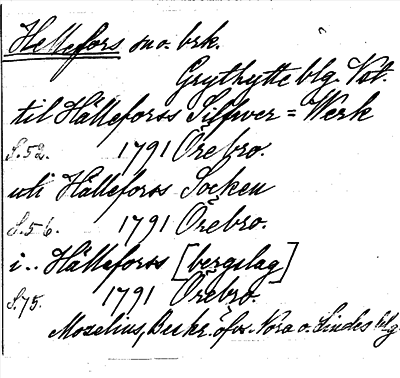 Hellefors sn o. brk.
Grythytte blg. Vst.
til Hälleforss Silfwer = Werk
S. 52. 1791 Örebro.
uti Hälleforss Socken
S. 56. 1791 Örebro.
i.. Hälleforss [bergslag]
S. 75. 1791 Örebro.
Moxelius, Beskr. öfv. Nora o. Lindes blg.